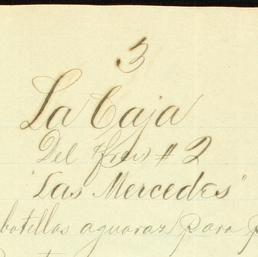 3
La Caja
Del # 2
"Las Mercedes"
botellas aguaraz para